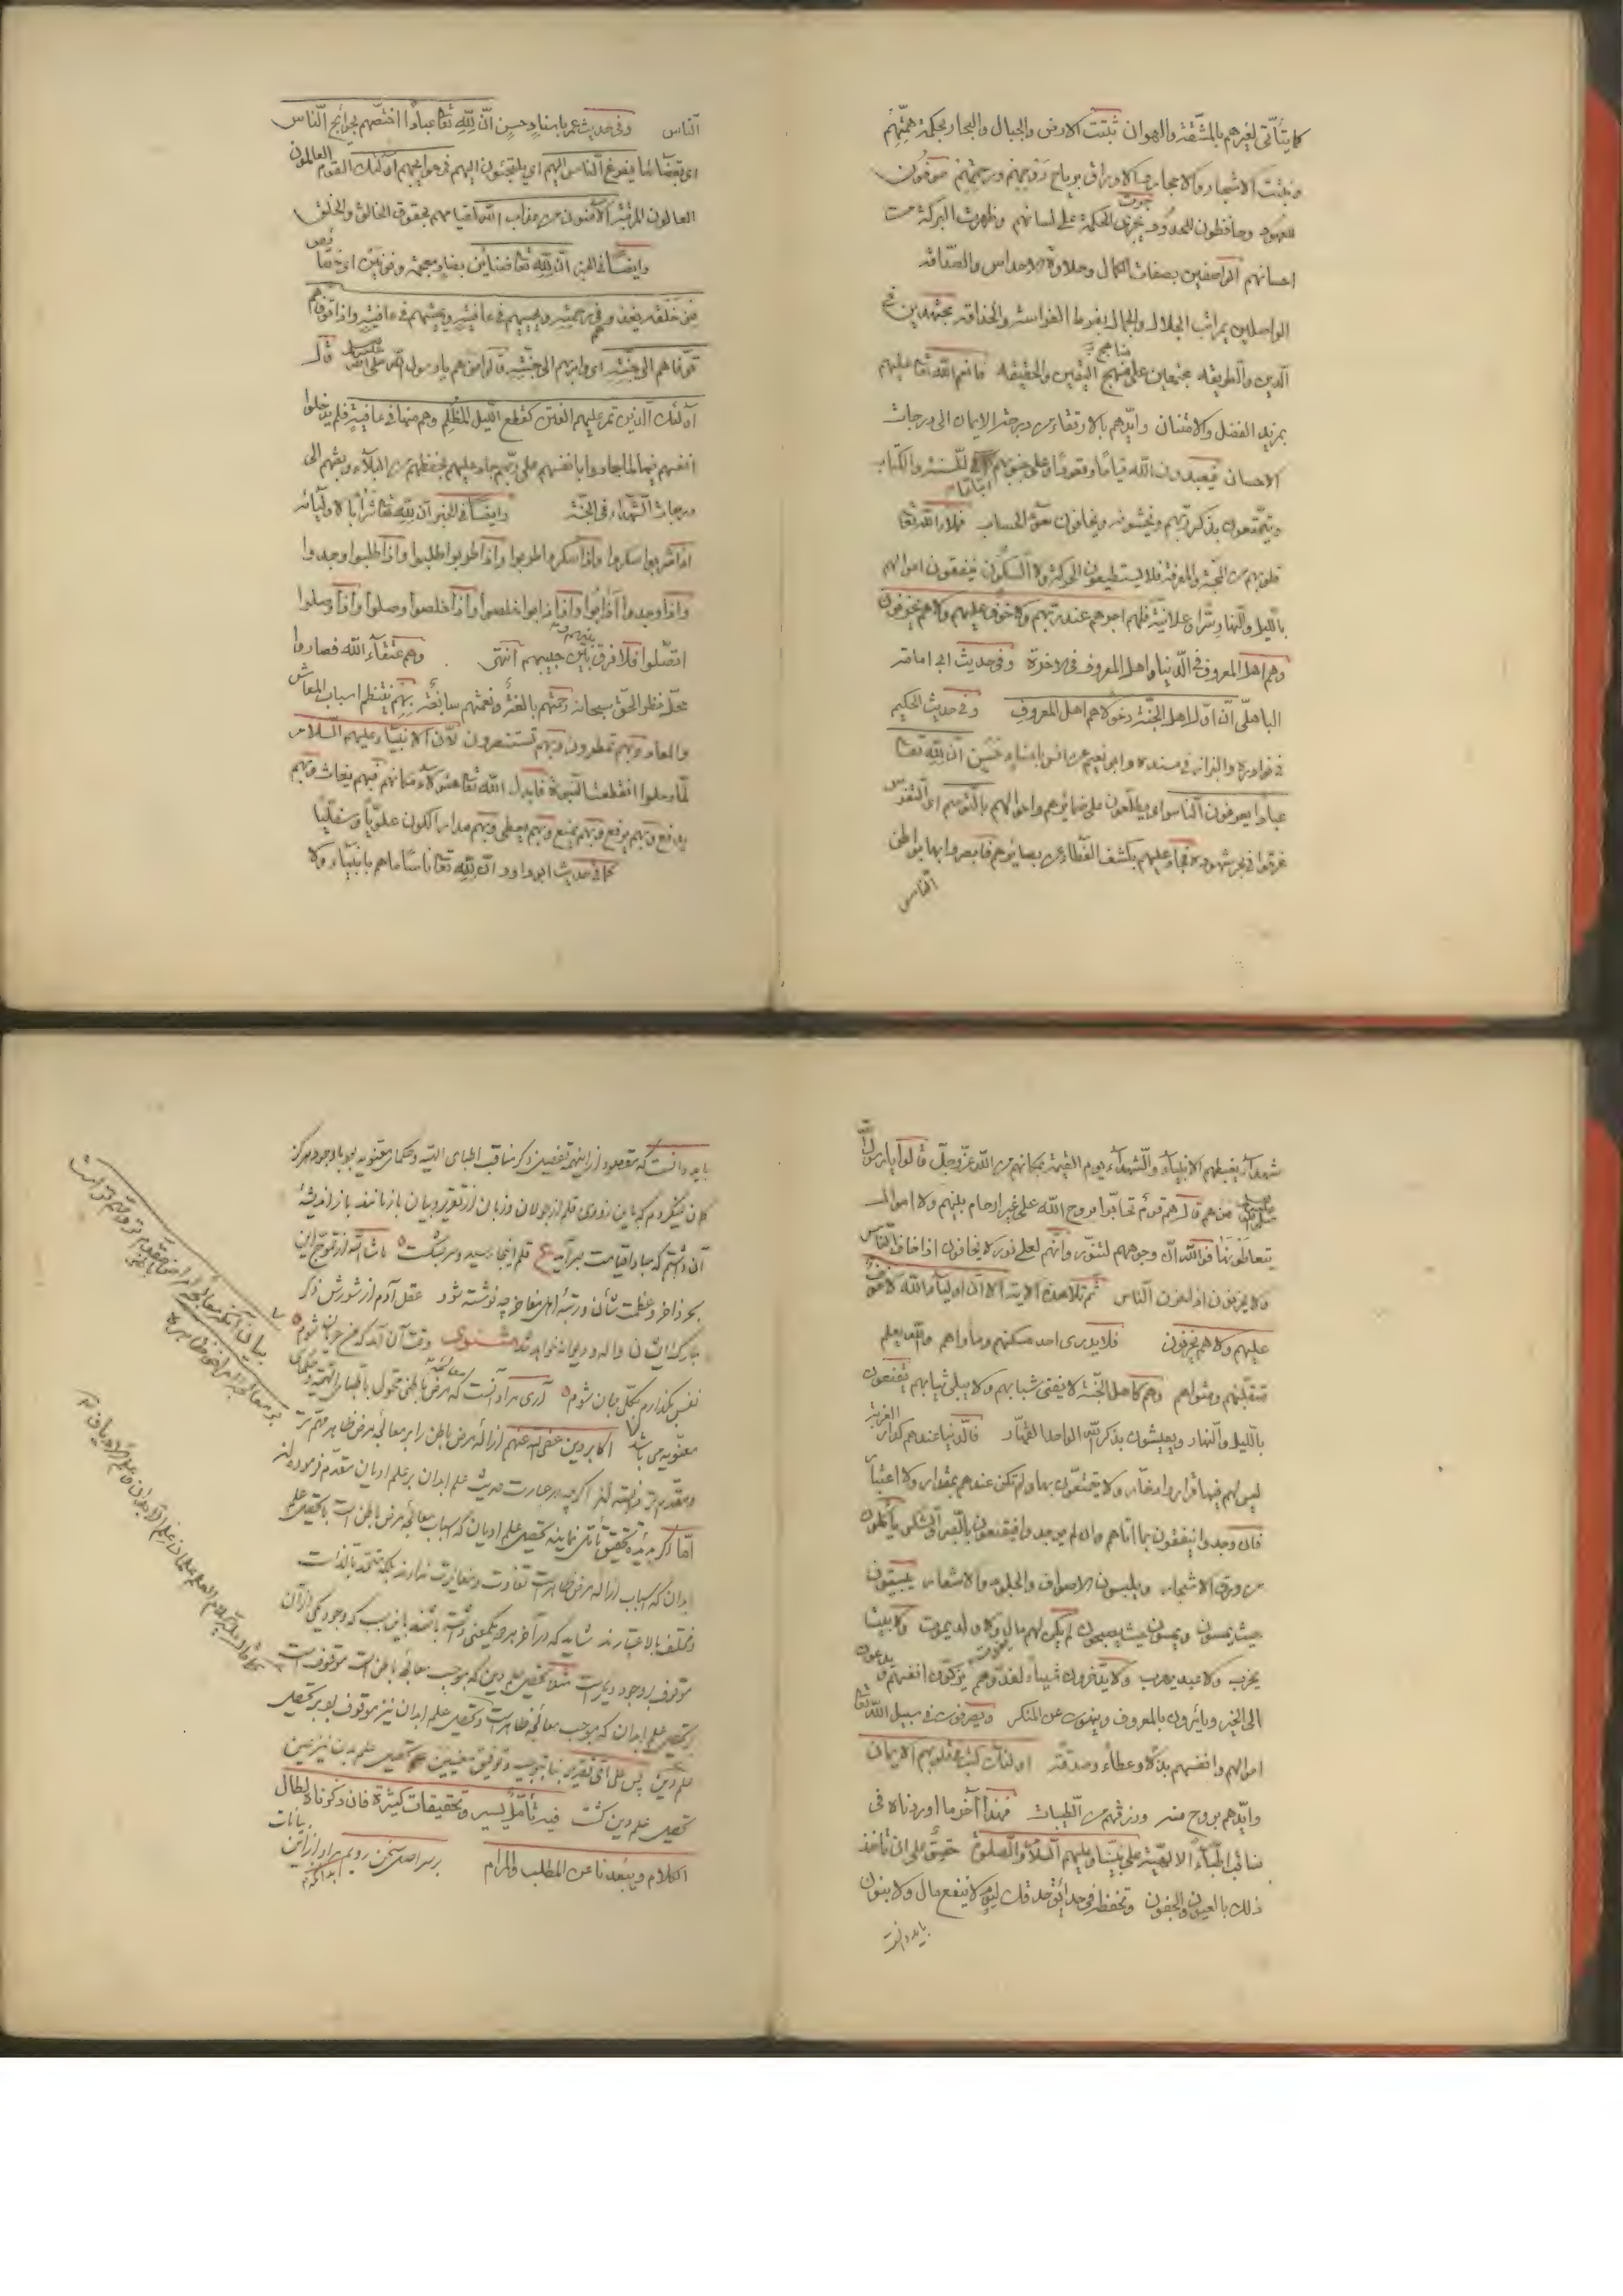 كما يتأتى لغيرهم بالمشقة والهوان ثبتت الارض والجبال والبحار بحكمة همتهم
ونبتت الاشجار والاحجار والاوراق برياح رحمتهم موفون
للعهود وحافظون للحدود يجرى الحكمة على لسانهم وظهرت البركة من
احسانهم الواصفين بصفات الكمال وحلاوة الاحداس والصداقة
الواصلين بمراتب الجلال والجمال بفرط الفراسة والحذاقة مجتهدين في
الدين والطريقه مجتمعين على منهج اليقين والحقيقه فانعم الله تعا عليهم
بمزيد الفضل والامتنان وايدهم بالارتقاء من درجة الايمان الى درجات
الاحسان فيعبدون الله قياما وقعودا وعلى جنوبهم للسنة والكتاب
ويتمتعون بذكر ربهم ويخشونه ويخافون سوء الحساب فملأ الله تعا
قلوبهم من المحبة والمعرفة فلا يستطيعون الحركة ولا السكون فينفقون اموالهم
بالليل والنهار سرا وعلانية فلهم اجرهم عند ربهم ولا خوف عليهم ولا هم يحزنون
وهم اهل المعروف في الدنيا واهل المعروف في الاخرة وفي حديث ابي امامة
الباهلي ان اول اهل الجنة دخولا هم اهل المعروف وفي حديث الحكيم
في نوادره والبزار في مسنده وابو نعيم عن انس باسناد حسن ان لله تعا
عبادا يعرفون الناس اي يطلعون على ضمائرهم واحوالهم بالتوسم اي التفرس
غرقوا في بحر شهوده فجاد عليهم بكشف الغطاء عن بصائرهم فابصروا بها بواطن
الناس
الناس وفي حديث عمر باسناد حسن ان لله تعا عبادا اختصهم بحوائج الناس
اي بقضائها يفزع الناس اليهم اي يلتجئون اليهم في حوائجهم اولئك القوم العالمون
العالون المرتبة الآمنون من عذاب الله لقيامهم بحقوق الخالق والخلق
وايضا في الخبر ان لله تعا ضنائن بضاد معجمة ونونين اي خصائص
من خلقه يغذوهم في رحمته ويحييهم في عافية ويميتهم في عافية واذا توفاهم
توفاهم الى جنته اي وابرهم الى جنته قالوا من هم يا رسول الله صلى الله عليه قال
اولئك الذين تمر عليهم الفتن كقطع الليل المظلم وهم منها في عافية فلم يدخلوا
انفسهم فيها لما جادوا بانفسهم على ربهم جاد عليهم بحفظهم من البلاء وبعثهم الى
درجات الشهداء في الجنة وايضا في الخبر ان لله تعا شرابا لاوليائه
اذا شربوا سكروا واذا سكروا طربوا واذا طربوا طلبوا واذا طلبوا وجدوا
واذا وجدوا ذابوا واذا ذابوا خلصوا واذا خلصوا وصلوا واذا وصلوا
اتصلوا فلا فرق بينهم وبين حبيبهم انتهى وهم عتقاء الله فصاروا
محل نظر الحق سبحانه رحمتهم بالغة ونعمتهم سابغة بهم ينتظم اسباب المعاش
والمعاد وبهم تمطرون وبهم تستنصرون لان الانبياء عليهم السلام
لما رحلوا انقطعت النبوة فابدل الله تعا هؤلاء مكانهم فبهم يغاث وبهم
يدفع وبهم يرفع وبهم يمنع وبهم يعطى وبهم مدار الكون علويا وسفليا
كما في حديث ابو داود ان لله تعا ناسا ما هم بانبياء ولا
شهداء يغبطهم الانبياء والشهداء يوم القيمة بمكانهم من الله عز وجل قالوا يا رسول الله
من هم قال هم قوم تحابوا بروح الله على غير ارحام بينهم ولا اموال
يتعاطونها فوالله ان وجوههم لتنور وانهم لعلى نور لا يخافون اذا خاف الناس
ولا يحزنون اذا حزن الناس ثم تلا هذه الاية الا ان اولياء الله لا خوف
عليهم ولا هم يحزنون فلا يدرى احد مسكنهم ومأواهم والله يعلم
متقلبهم ومثواهم وهم كاهل الجنة لا يفنى شبابهم ولا يبلى ثيابهم يقنعون
بالليل والنهار ويعيشون بذكر الله الواحد القهار العزيز فالدنيا عندهم كدار
ليس لهم فيها قرار ولا يتمتعون بها ولم تكن عندهم بمقدار ولا اعتبار
فان وجدوا ينفقون بما اتاهم وان لم يوجدوا فيقنعون بالصبر والشكر يأكلون
من ورق الاشجار ويلبسون الاصواف والجلود والاشعار يبيتون
حيث يمسون ويمسون حيث يصبحون لم يكن لهم مال ولا ولد يموت ولا بيتا
يخرب ولا عبد يهرب ولا يدخرون شيئا لغدهم يزكون انفسهم ويدعون
الى الخير ويأمرون بالمعروف وينهون عن المنكر ويصرفون في سبيل الله تعا
اموالهم وانفسهم بذلا وعطاء وصدقة اولئك كتب في قلوبهم الايمان
وايدهم بروح منه ورزقهم من الطيبات فهذا آخر ما اوردناه في
مناقب اطباء الالهية على نبينا وعليهم السلام والصلوة حقيق على ان تأخذ
ذلك بالعيون والجفون وتحفظ في حدائق حدقتك ليوم لا ينفع مال ولا بنون
بايد دانست
بايد دانست كه مقصود از اينهمه تفصيل ذكر مناقب اطباى الهيه وحكماى معنويه بود باوجود هرگز
گمان نميكردم كه باين زودى قلم از جولان وزبان از تقرير وبيان باز ماند باز انديشهٔ
آن داشتم كه مبادا قيامت برآيد ع قلم اينجا رسيد وسر بشكست ماشاالله از تموج اين
بحر ذاخر وعظمت شان ورتبهٔ اهل مفاخر چه نوشته شود عقل آدم از شورش ذكر
مبارك ايشان واله وديوانه خواهد شد مثنوى وقت آن آمد كه من عريان شوم
نفس بگذارم بكلى جان شوم آرى مراد آنست كه معالجهٔ مرض باطنى محول باطباى الهيه وحكماى
معنويه مى باشد اكابر دين عفى الله عنهم ازالهٔ مرض باطن را بر معالجهٔ مرض ظاهر مهم تر
ومقدم تر دانسته اند اگرچه در عبارت حديث علم ابدان بر علم اديان مقدم فرموده اند
اما اگر بديدهٔ تحقيق تأمل نمايند تحصيل علم اديان كه اسباب معالجهٔ مرض باطن است با تحصيل علم
ابدان كه اسباب ازالهٔ مرض ظاهر است تفاوت ومغايرت ندارند بلكه متحد بالذات
ومختلف بالاعتبارند شايد كه در آخر هر دو يكمعنى داشته باشند باين سبب كه وجود يكى از آن
موقوف بوجود ديگر است مثلا تحصيل علم دين كه موجب معالجهٔ باطن است موقوف است
بر تحصيل علم ابدان كه موجب معالجهٔ ظاهر است وتحصيل علم ابدان نيز موقوف بود بر تحصيل
علم دين پس على اى تقدير بنا بتوجيه وتوفيق معنيين تحصيل علم بدن نيز عين
تحصيل علم دين گشت فيه تأمل يسير وتحقيقات كثيرة فان ذكرناه لطال
الكلام ويبعدنا عن المطلب والمرام بر سر اصل سخن رويم مراد از اين بيانات
بيان آنكه معالجهٔ امراض باطنى مقدم
بر معالجهٔ امراض ظاهره